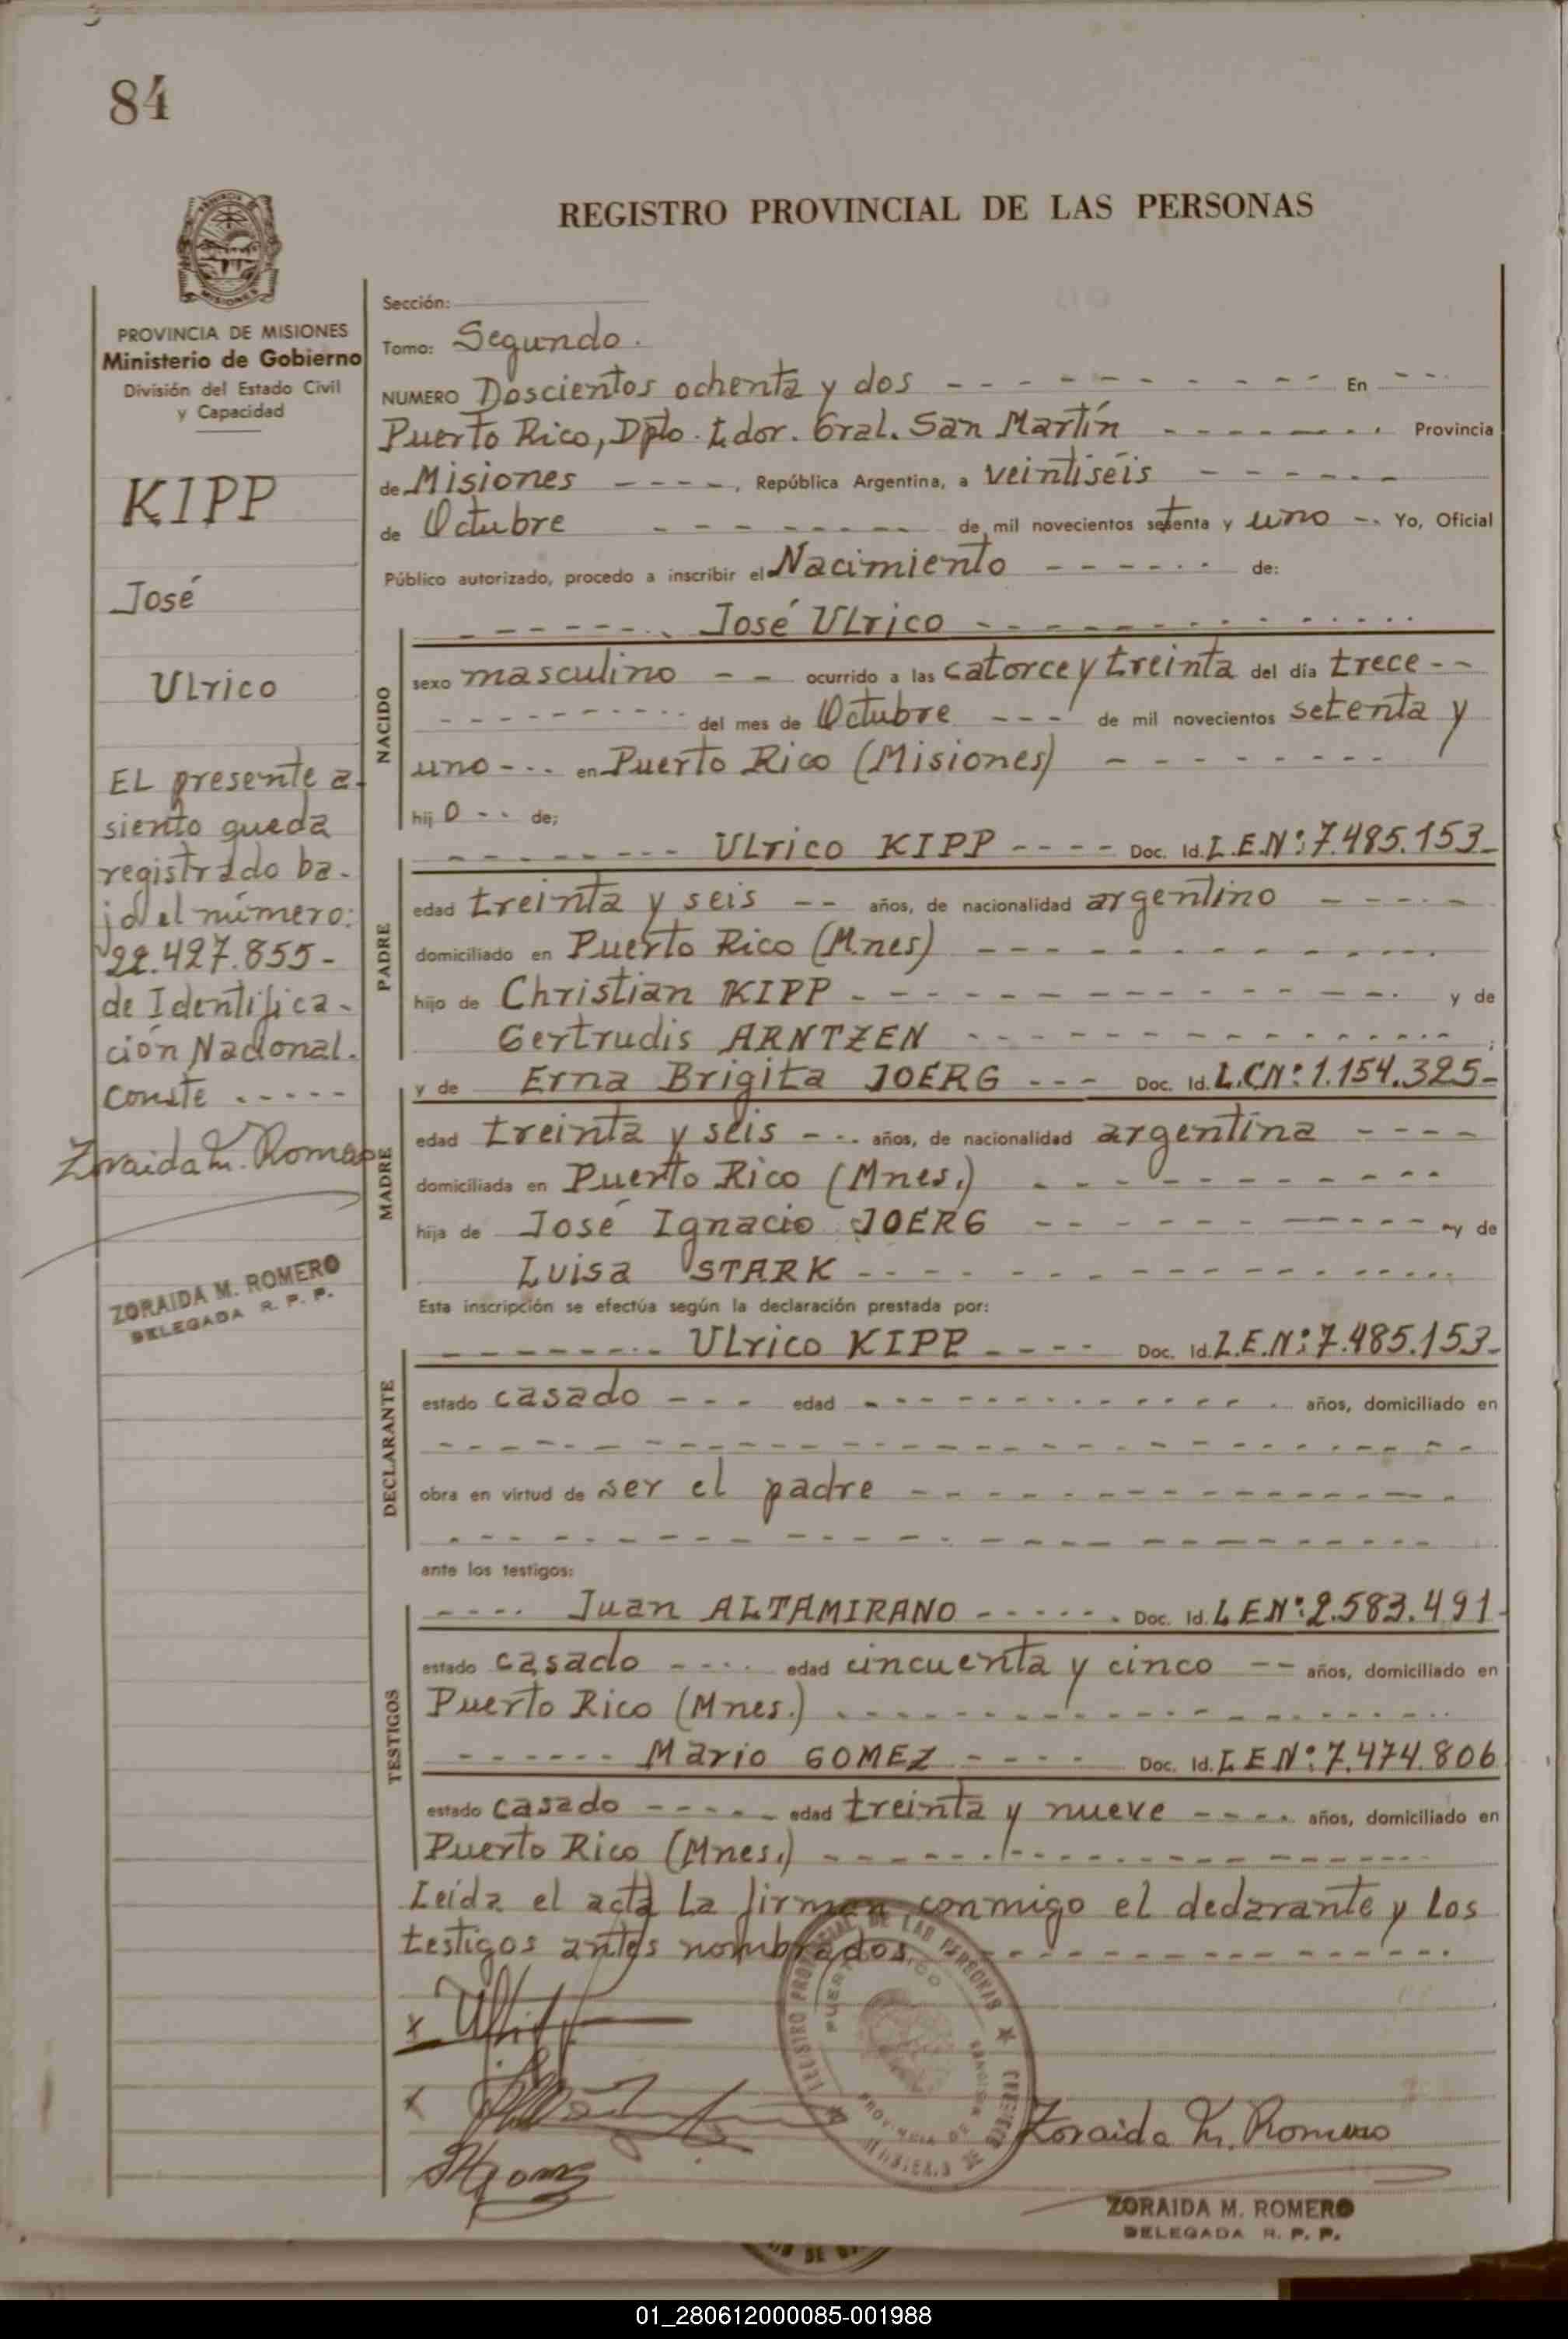 84
REGISTRO PROVINCIAL DE LAS PERSONAS
PROVINCIA DE MISIONES
Ministerio de Gobierno
División del Estado Civil
y Capacidad
KIPP
José
Ulrico
El presente a-
siento queda
registrado ba-
jo el número:
22.427.855-
de Identifica-
ción Nacional.
Conste -----
Zoraida M. Romero
ZORAIDA M. ROMERO
DELEGADA R. P. P.
Sección:
Tomo: Segundo.
NUMERO Doscientos ochenta y dos - - - - - - - - - - En - - -
Puerto Rico, Dpto. Ldor. Gral. San Martín - - - - - - - - Provincia
de Misiones - - - -, República Argentina, a veintiséis - - - - - -
de Octubre - - - - - - - - de mil novecientos setenta y uno -. Yo, Oficial
Público autorizado, procedo a inscribir el Nacimiento - - - - - - de:
NACIDO
- - - - - - - José Ulrico - - - - - - - - - - - -
sexo masculino - - ocurrido a las catorce y treinta del día trece - -
- - - - - - - - - - del mes de Octubre - - - de mil novecientos setenta y
uno - - - en Puerto Rico (Misiones) - - - - - - - -
hij o - - de;
PADRE
- - - - - - - - Ulrico KIPP - - - - Doc. Id. L.E.Nº: 7.485.153-
edad treinta y seis - - años, de nacionalidad argentino - - - - -
domiciliado en Puerto Rico (Mnes) - - - - - - - - - - -
hijo de Christian KIPP - - - - - - - - - - - - - y de
Gertrudis ARNTZEN - - - - - - - - - - - - - ;
MADRE
y de Erna Brigita JOERG - - - Doc. Id. L.C.Nº: 1.154.325-
edad treinta y seis - - - años, de nacionalidad argentina - - - -
domiciliada en Puerto Rico (Mnes.) - - - - - - - - - -
hija de José Ignacio JOERG - - - - - - - - - - - y de
Luisa STARK - - - - - - - - - - - - - - -
Esta inscripción se efectúa según la declaración prestada por:
DECLARANTE
- - - - - - - - Ulrico KIPP - - - - Doc. Id. L.E.Nº: 7.485.153-
estado casado - - - edad - - - - - - - - - - - - años, domiciliado en
- - - - - - - - - - - - - - - - - - - - - - - -
obra en virtud de ser el padre - - - - - - - - - - - - - -
- - - - - - - - - - - - - - - - - - - - - - - -
ante los testigos:
TESTIGOS
- - - - Juan ALTAMIRANO - - - - - - Doc. Id. L E Nº: 2.583.491-
estado casado - - - - edad cincuenta y cinco - - años, domiciliado en
Puerto Rico (Mnes.) - - - - - - - - - - - - - - - -
- - - - - - Mario GOMEZ - - - - Doc. Id. L E Nº: 7.474.806
estado casado - - - - - edad treinta y nueve - - - - años, domiciliado en
Puerto Rico (Mnes.) - - - - - - - - - - - - - - - -
Leida el acta la firman conmigo el declarante y los
testigos antes nombrados. - - - - - - - - - - - - -
REGISTRO PROVINCIAL DE LAS PERSONAS
PROVINCIA DE
x
x
Zoraida M. Romero
ZORAIDA M. ROMERO
DELEGADA R. P. P.
01_280612000085-001988